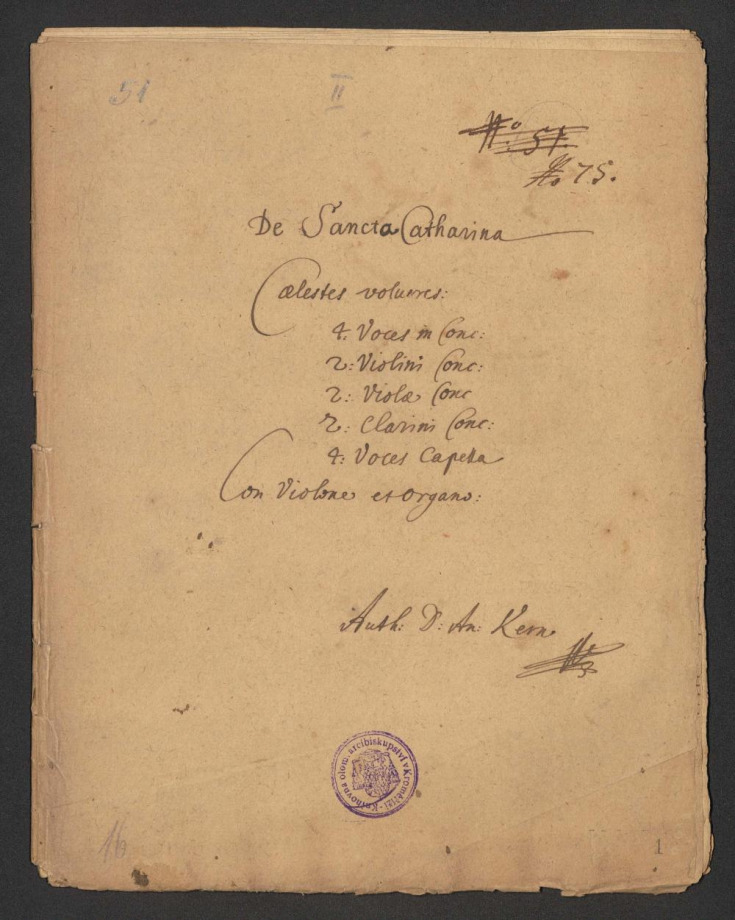 51
II
No 51.
No 75.
De Sancta Catharina
Cælestes volucres:
4: Voces in Conc:
2: Violini Conc:
2: Violæ Conc
2: Clarini Conc:
4: Voces Capella
Con Violone et Organo:
Auth: D: An: Kern
Knihovna olom. arcibiskupství v Kroměříži
16
1